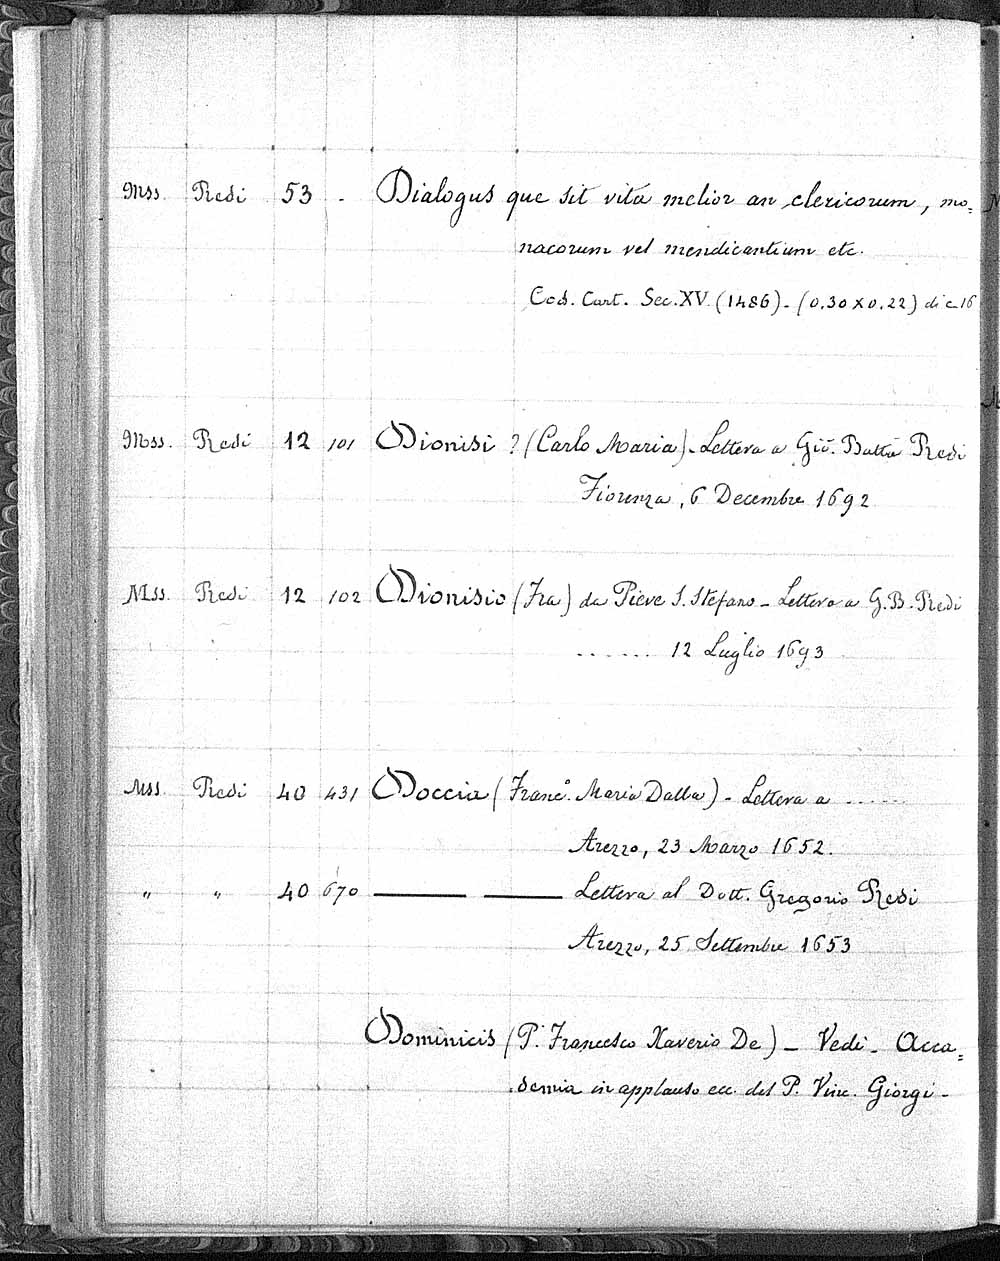 Mss. Redi 53 - Dialogus que sit vita melior an clericorum, mo=
nacorum vel mendicantium etc.
Cod. Cart. Sec. XV. (1486) - (0.30 x 0.22) di c. 16
Mss. Redi 12 101 Dionisi ? (Carlo Maria) - Lettera a Gio. Batta Redi
Fiorenza, 6 Decembre 1692
Mss. Redi 12 102 Dionisio (Fra) da Pieve S. Stefano - Lettera a G. B. Redi
...... 12 Luglio 1693
Mss. Redi 40 431 Doccia (Franc.º Maria Dalla) - Lettera a ......
Arezzo, 23 Marzo 1652.
" " 40 670 —— —— Lettera al Dott. Gregorio Redi
Arezzo, 25 Settembre 1653
Dominicis (P. Francesco Xaverio De) - Vedi - Acca=
demia in applauso ecc. del P. Vinc. Giorgi -